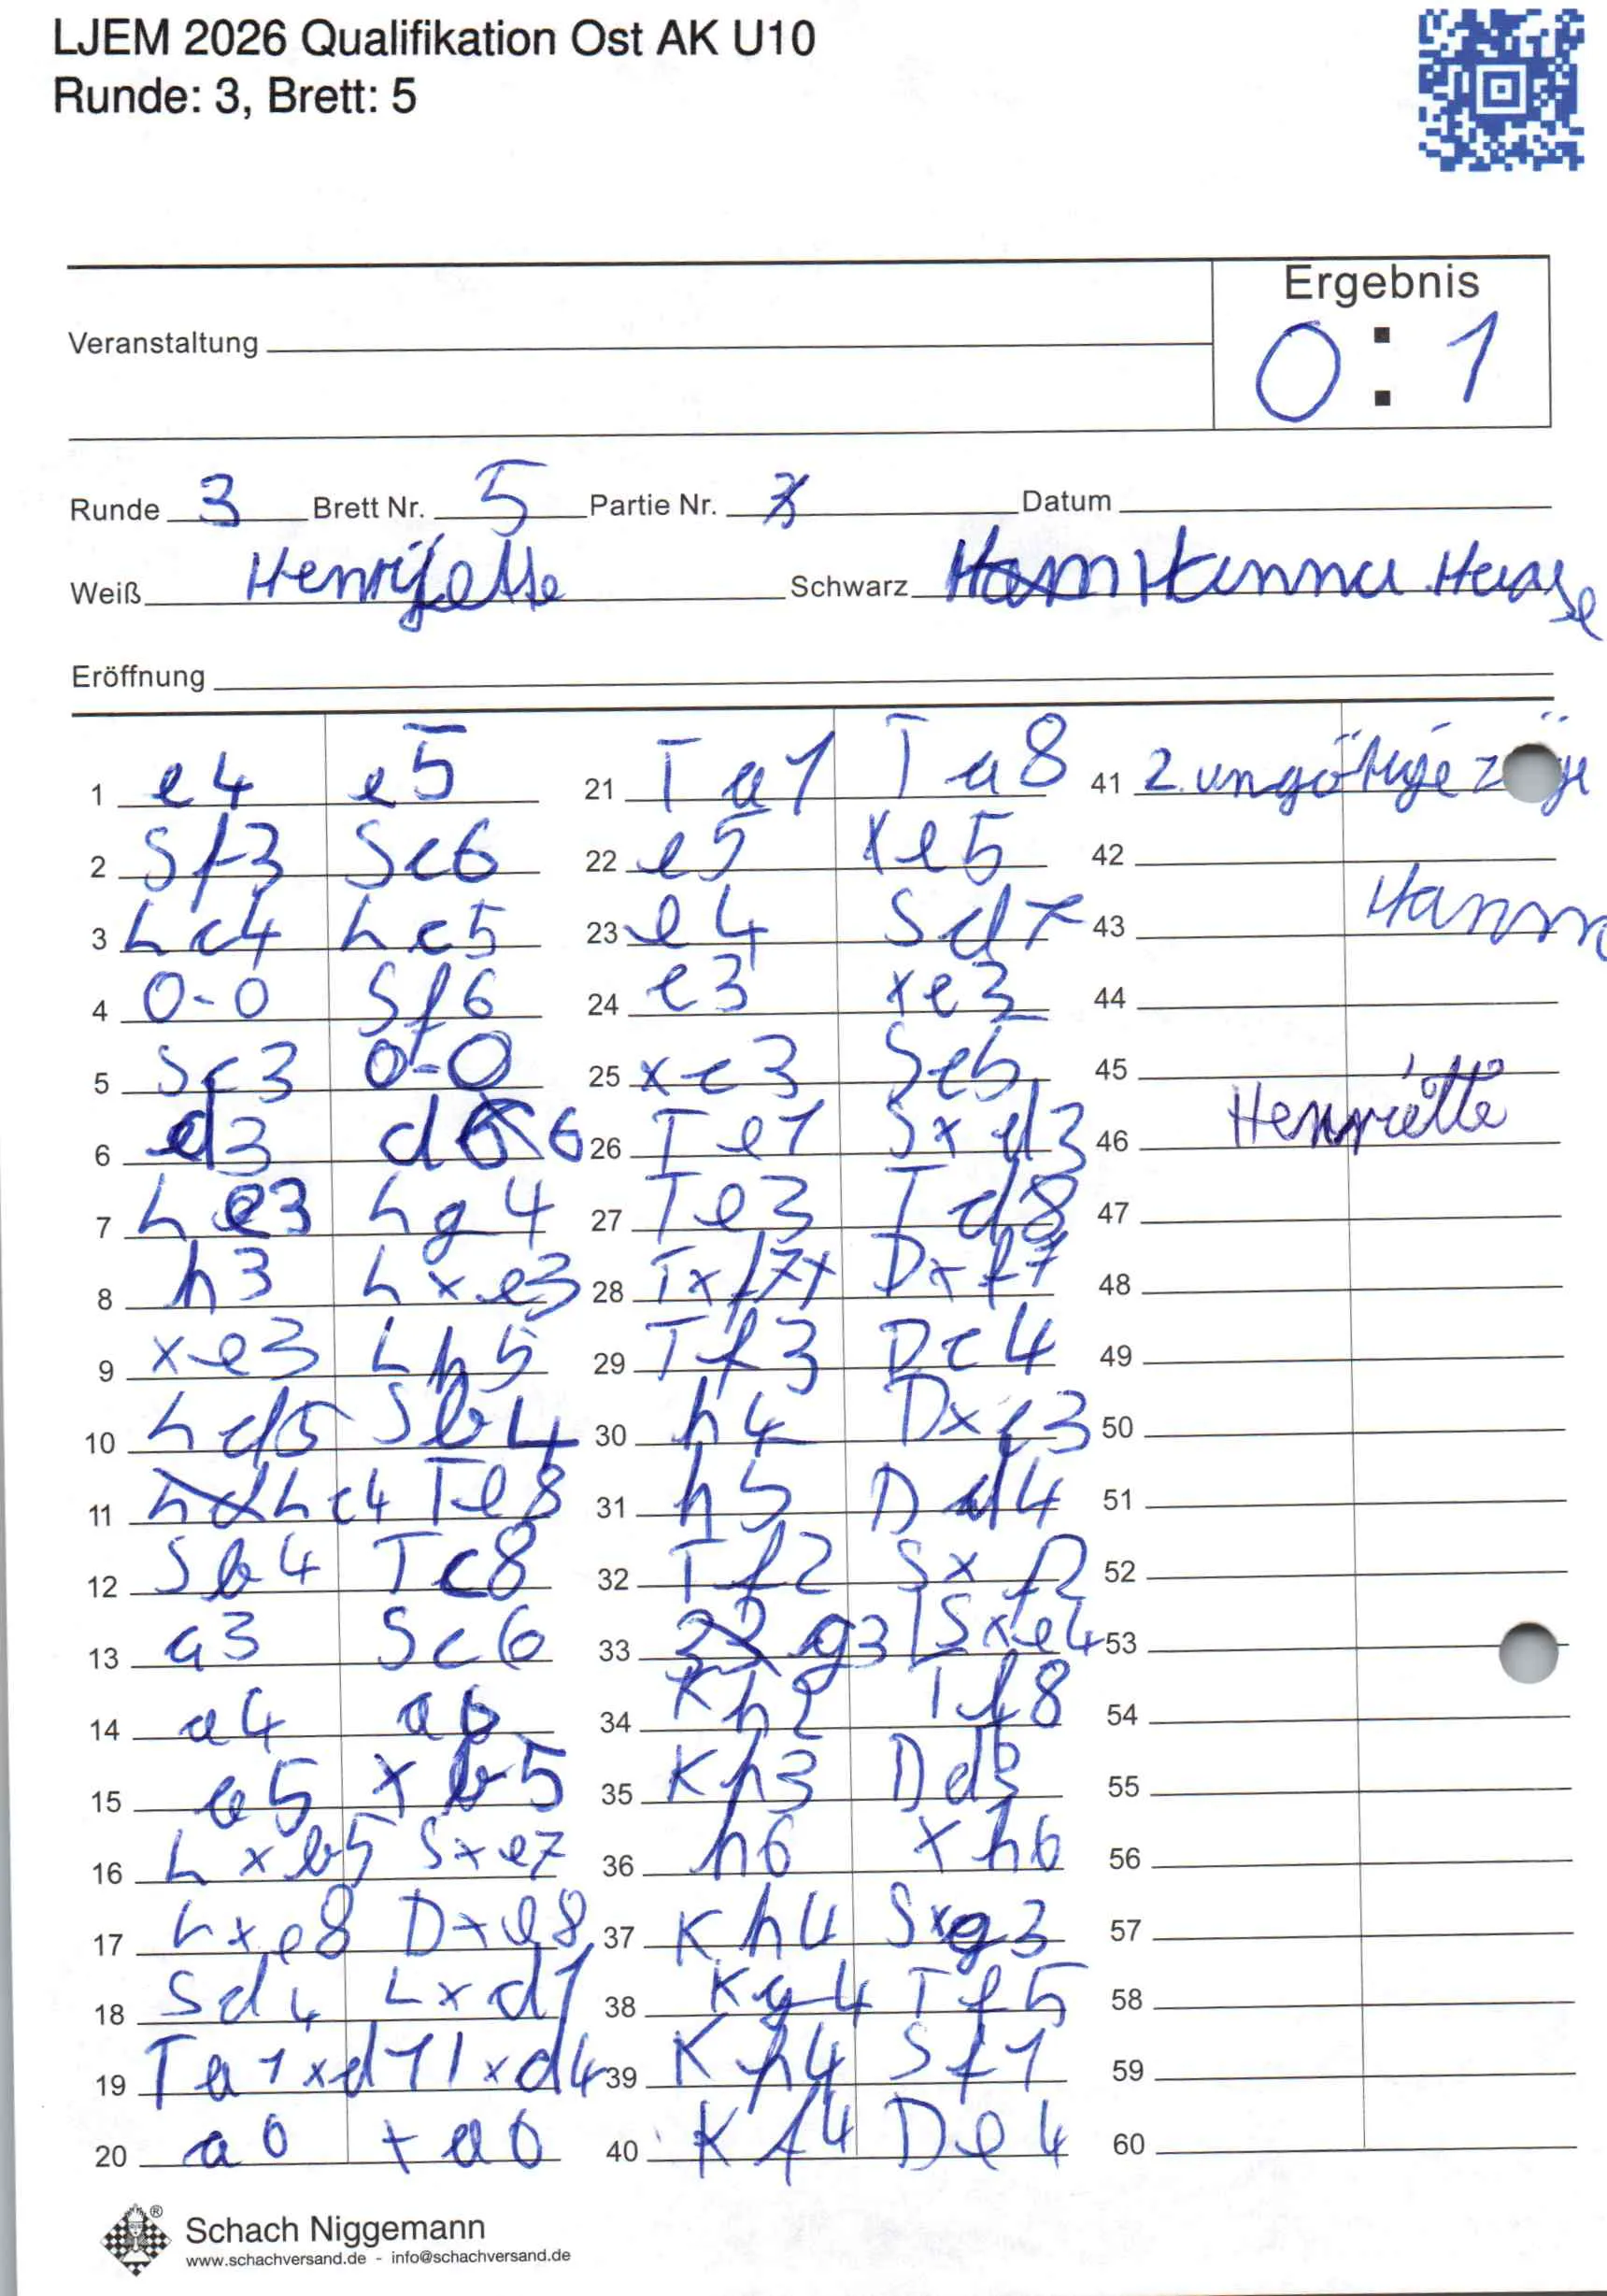 LJEM 2026 Qualifikation Ost AK U10
Runde: 3, Brett: 5
Ergebnis
0 : 1
Veranstaltung
Runde 3 Brett Nr. 5 Partie Nr. Datum
Weiß Henrijette Schwarz Hanna Haase
Eröffnung
1 e4 e5
2 Sf3 Sc6
3 Lc4 Lc5
4 0-0 Sf6
5 Sc3 0-0
6 d3 d6
7 Le3 Lg4
8 h3 Lxe3
9 xe3 Lh5
10 Ld5 Sb4
11 Lc4 Te8
12 Sb4 Tc8
13 a3 Sc6
14 a4 a6
15 a5 xb5
16 Lxb5 Sxe7
17 Lxe8 Dxe8
18 Sd4 Lxd1
19 Ta1xd1 xd4
20 a6 xa6
21 Ta1 Ta8
22 e5 xe5
23 e4 Sd7
24 e3 xe3
25 xe3 Sc5
26 Te1 Sxd3
27 Te3 Td8
28 Txf7+ Dxf7
29 Tf3 Dc4
30 h4 Dxc3
31 h5 Dd4
32 Tf2 Sxf2
33 g3 Sxe4
34 Kh2 Tf8
35 Kh3 Dd3
36 h6 xh6
37 Kh4 Sxg3
38 Kg4 Tf5
39 Kh4 Sf1
40 Kf4 De4
41 2 ungötige
42
43 Hann
44
45
46 Henriette
47
48
49
50
51
52
53
54
55
56
57
58
59
60
Schach Niggemann
www.schachversand.de - info@schachversand.de